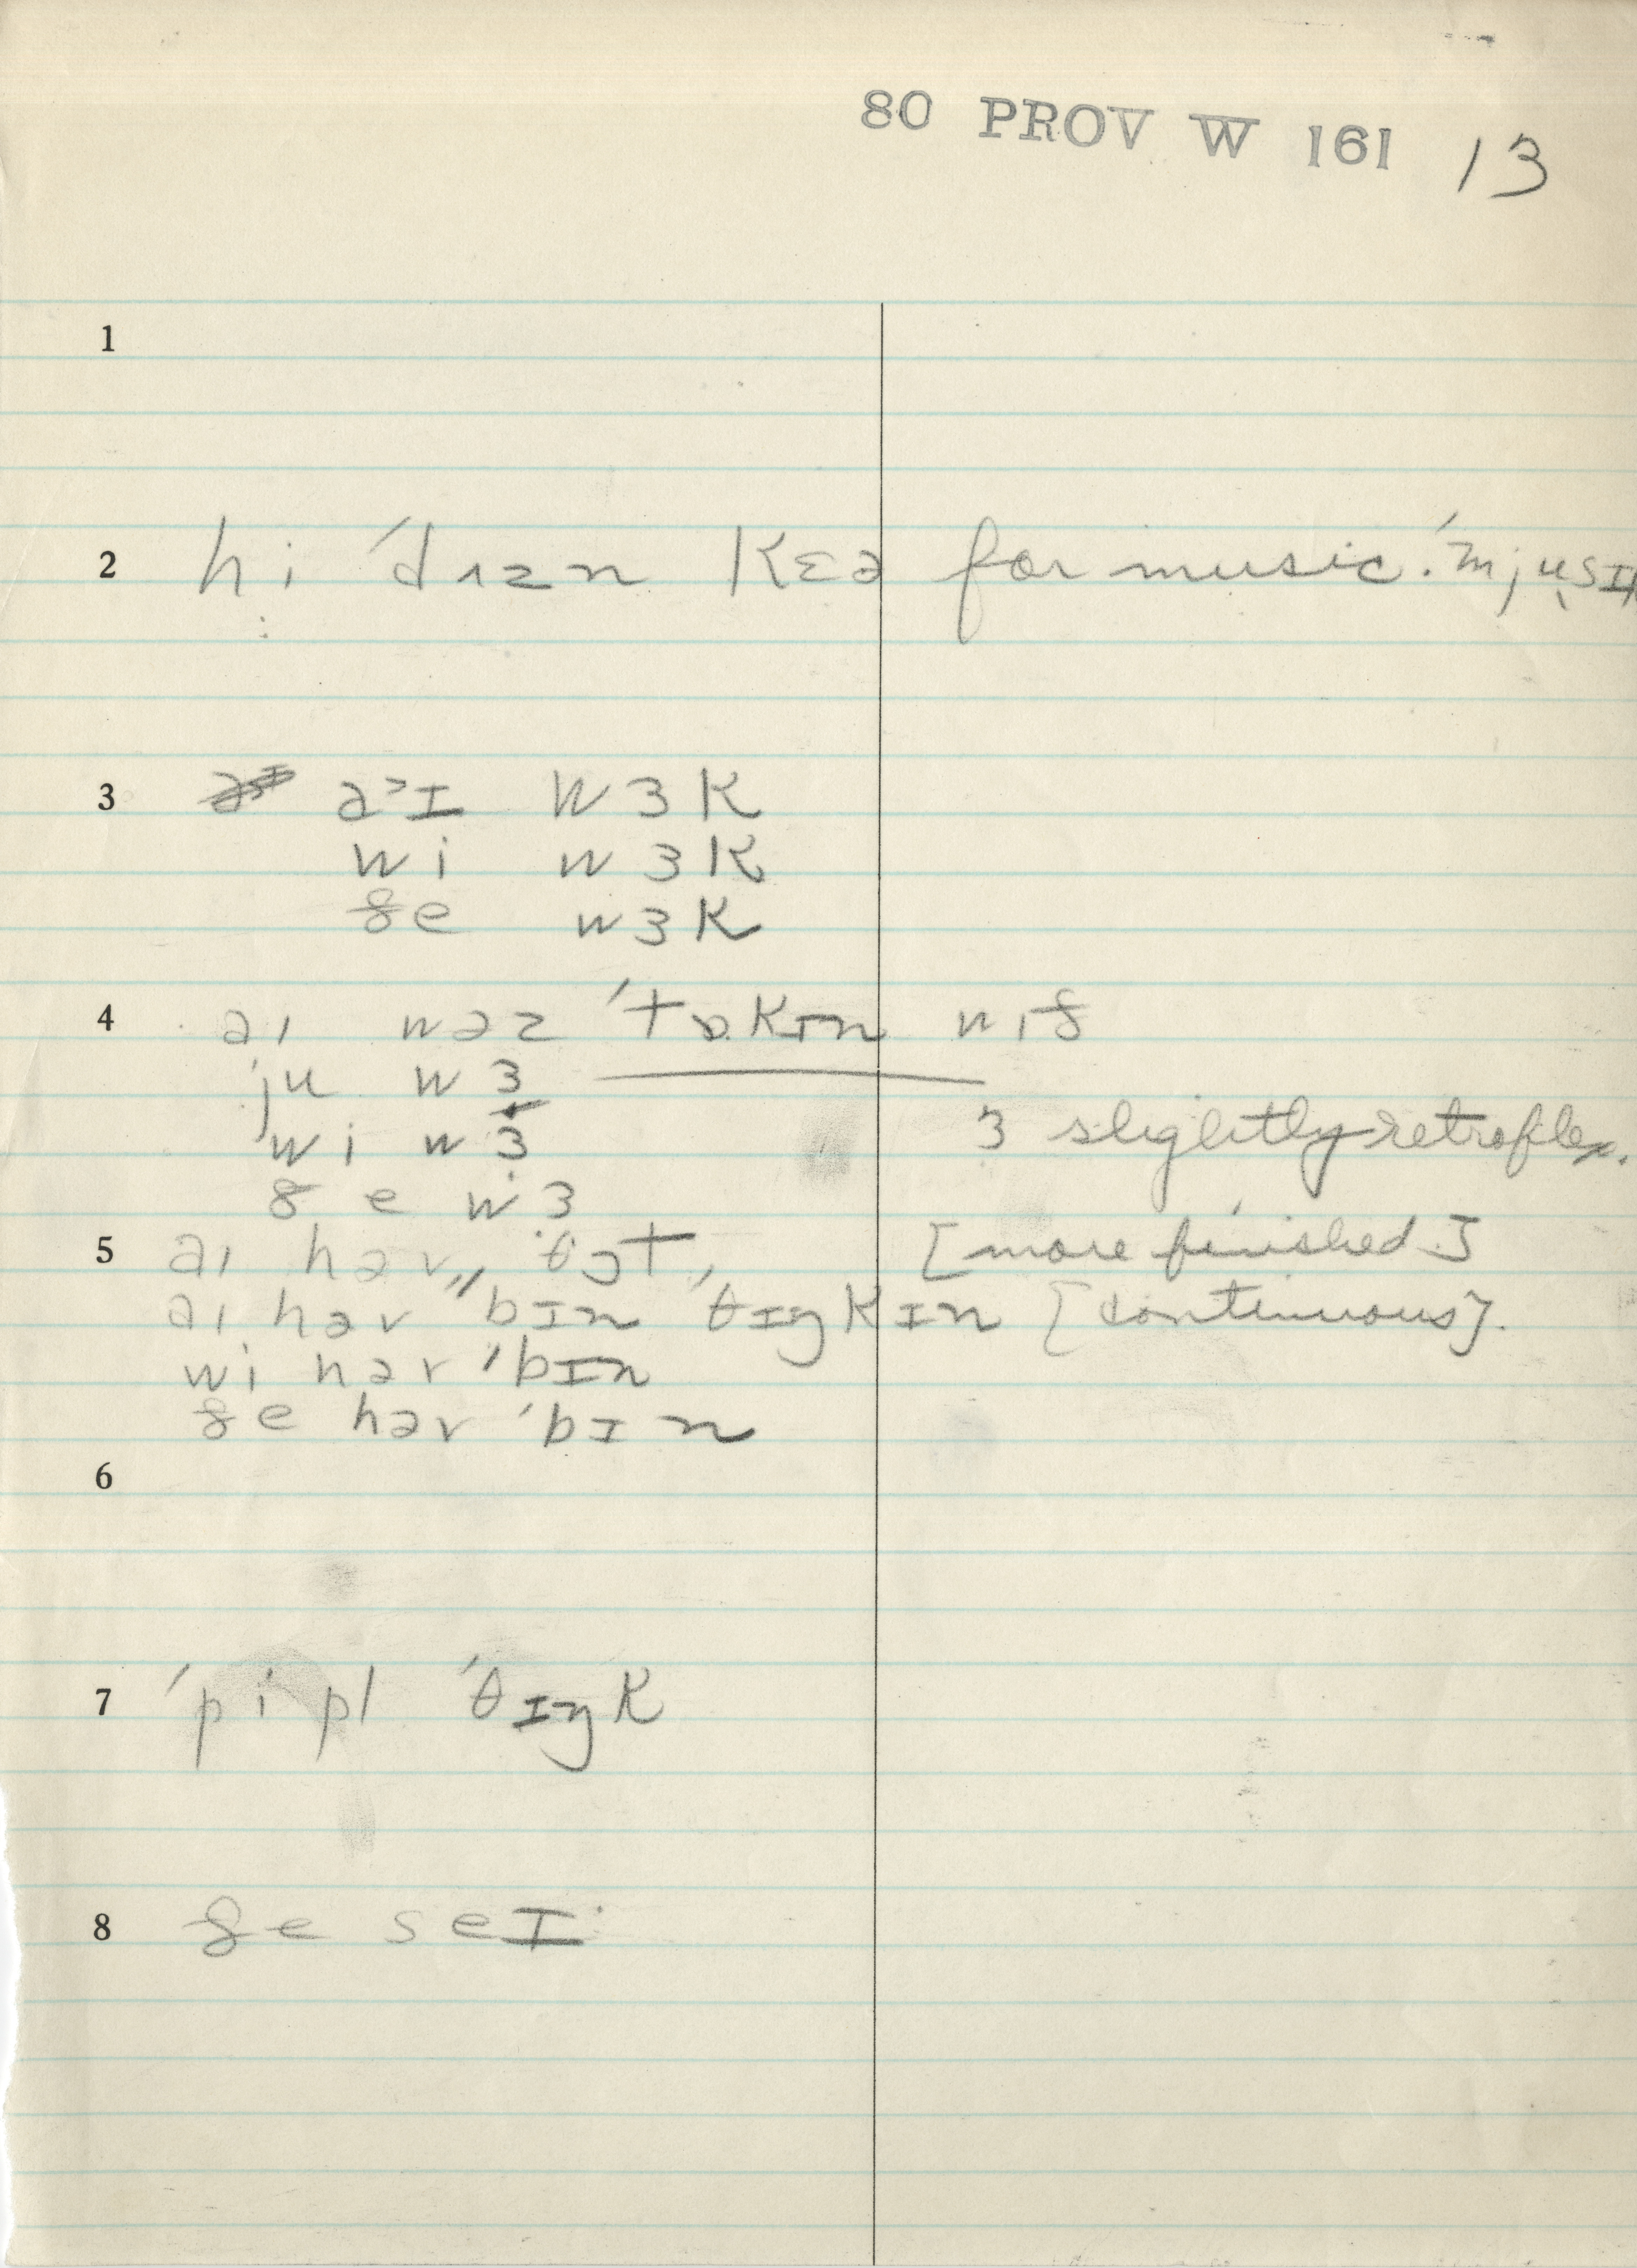 80 PROV W 161 13
1
2 hi ˈdɪzn kɛə for music. ˈmjusɪk
3 əˀɪ wɜk
wi wɜk
ðe wɜk
4 aɪ wəz ˈtɒkɪn wɪð
ju wɜ
wi wɜ
ɜ slightly retroflex.
ðe wɜ
5 aɪ həv θɔt [more finished]
aɪ həv ˈˈbɪn ˈθɪŋkɪn [continuous].
wi həv ˈbɪn
ðe həv ˈbɪn
6
7 ˈpipl ˈθɪŋk
8 ðe seɪ